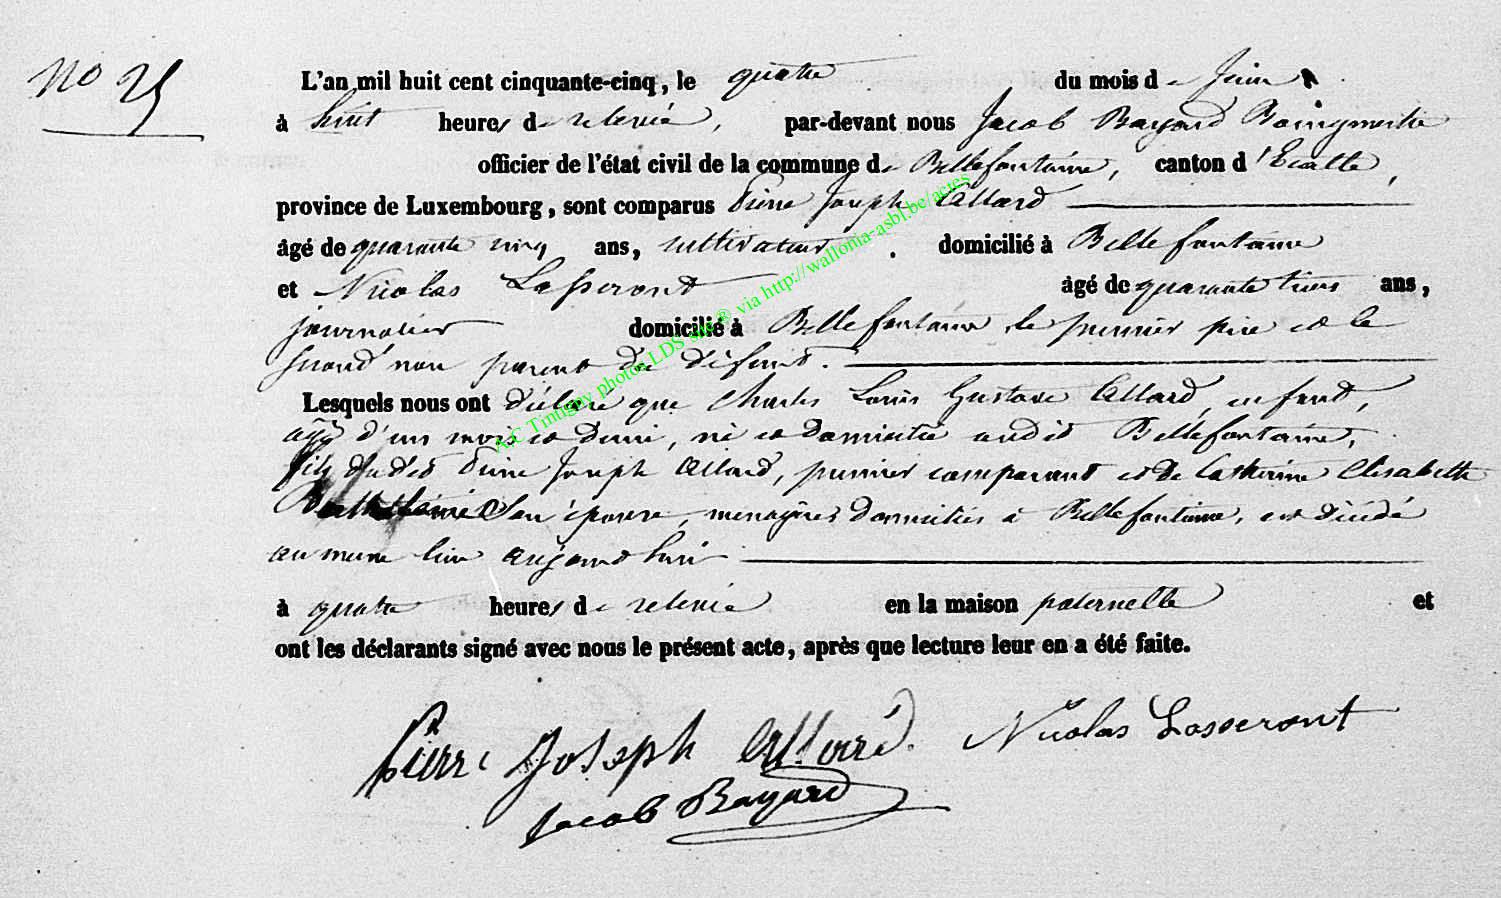 No 25
L'an mil huit cent cinquante-cinq, le quatre du mois de Juin
à huit heures de relevée, par-devant nous Jacob Bayard Bourgmestre
officier de l'état civil de la commune de Bellefontaine, canton d'Etalle,
province de Luxembourg, sont comparus Pierre Joseph Allard
âgé de quarante cinq ans, cultivateur . domicilié à Bellefontaine
et Nicolas Lasseront âgé de quarante trois ans,
journalier domicilié à Bellefontaine, le premier père et le
second non parent du défunt.
Lesquels nous ont déclaré que Charles Louis Gustave Allard, enfant,
âgé d'un mois et demi, né et domicilié audit Bellefontaine,
fils dudit Pierre Joseph Allard, premier comparant et de Catherine Elisabeth
son épouse, ménagère domiciliés à Bellefontaine, est décédé
au même lieu aujourd'hui
à quatre heures de relevée en la maison paternelle et
ont les déclarants signé avec nous le présent acte, après que lecture leur en a été faite.
Pierre Joseph Allard. Nicolas Losseront
Jacob Bayard
A.C Tintigny photos LDS site ® via http://wallonia-asbl.be/actes